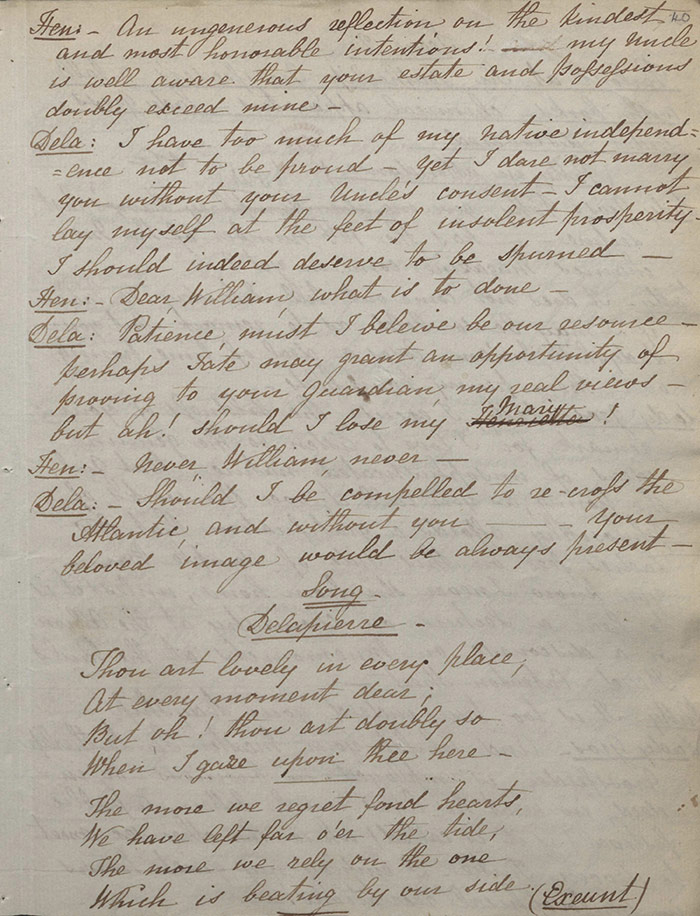 40
Hen: - An ungenerous reflection on the kindest
and most honorable intentions! my Uncle
is well aware that your estate and possessions
doubly exceed mine -
Dela: I have too much of my native independ=
=ence not to be proud - yet I dare not marry
you without your Uncle's consent - I cannot
lay myself at the feet of insolent prosperity -
I should indeed deserve to be spurned -
Hen: - Dear William, what is to done -
Dela: Patience must I beleive be our resource -
perhaps Fate may grant an opportunity of
proving to your Guardian, my real views -
but ah! should I lose my Henrietta Mary!
Hen: - Never, William, never -
Dela: - Should I be compelled to re-cross the
Atlantic, and without you - - Your
beloved image would be always present -
Song -
Delapierre -
Thou art lovely in every place,
At every moment dear;
But oh! thou art doubly so
When I gaze upon thee here -
The more we regret fond hearts,
We have left far o'er the tide,
The more we rely on the one
Which is beating by our side. (Exeunt)